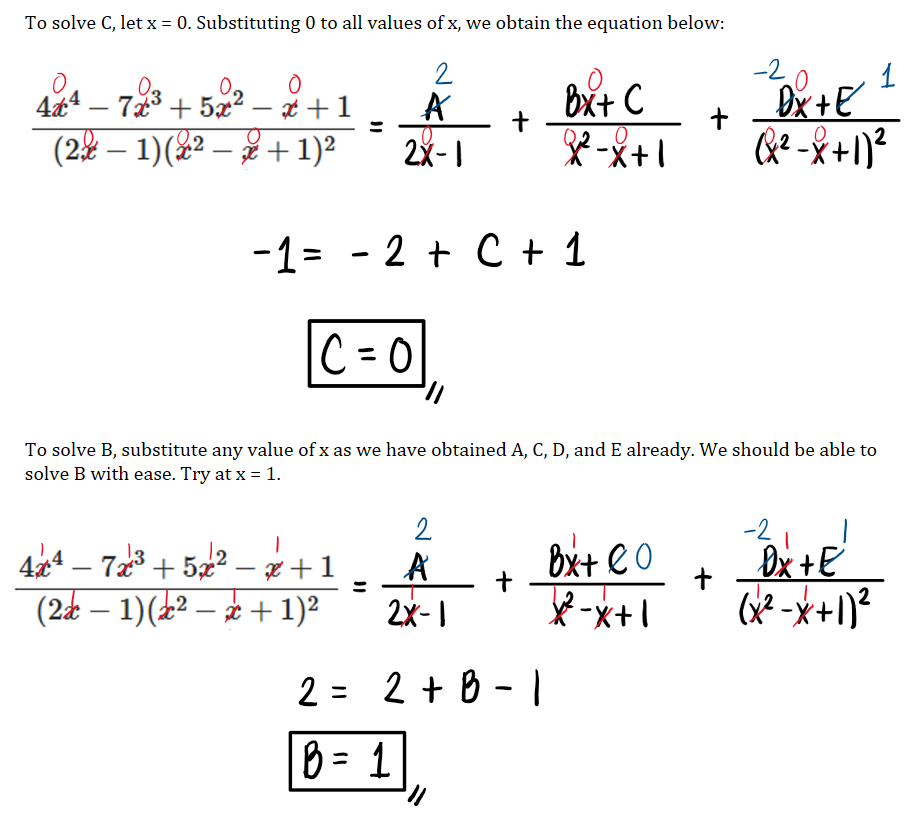 To solve C, let x = 0. Substituting 0 to all values of x, we obtain the equation below:
0 0 0 0 2 0 -2 0 1
4x⁴ − 7x³ + 5x² − x + 1 / (2x − 1)(x² − x + 1)² = A / 2x-1 + Bx+C / x²-x+1 + Dx+E / (x²-x+1)²
0 0 0 0 0 0 0 0
-1 = -2 + C + 1
C = 0 //
To solve B, substitute any value of x as we have obtained A, C, D, and E already. We should be able to
solve B with ease. Try at x = 1.
1 1 1 1 2 1 0 -2 1 1
4x⁴ − 7x³ + 5x² − x + 1 / (2x − 1)(x² − x + 1)² = A / 2x-1 + Bx+C / x²-x+1 + Dx+E / (x²-x+1)²
1 1 1 1 1
2 = 2 + B - 1
B = 1 //